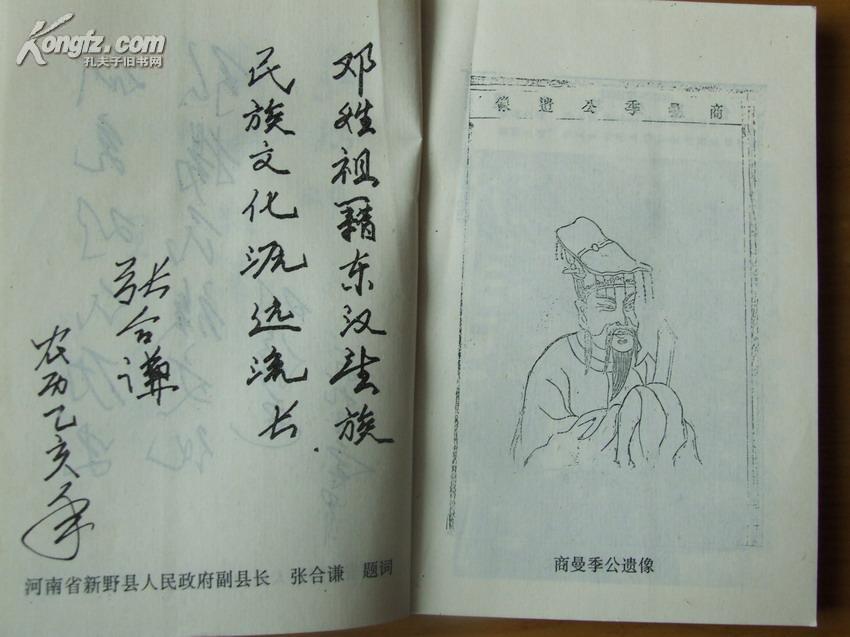 Kongfz.com
孔夫子旧书网
邓姓祖籍东汉望族
民族文化源远流长
张合谦
农历乙亥年
河南省新野县人民政府副县长 张合谦 题词
商曼季公遗像
商曼季公遺像